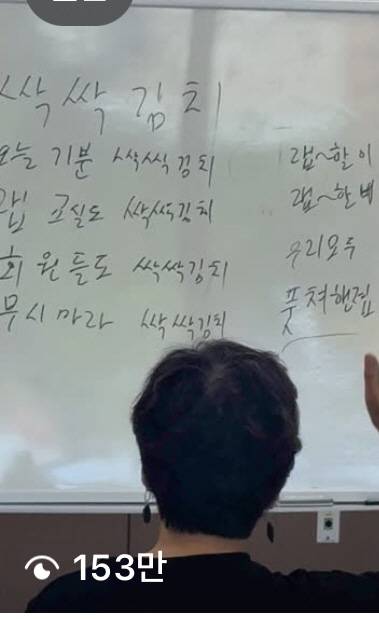 싹싹김치
오늘 기분 싹싹김치
랩 교실도 싹싹김치
회원들도 싹싹김치
무시마라 싹싹김치
랩~할 이
랩~할 배
우리모두
풋쳐핸접
153만